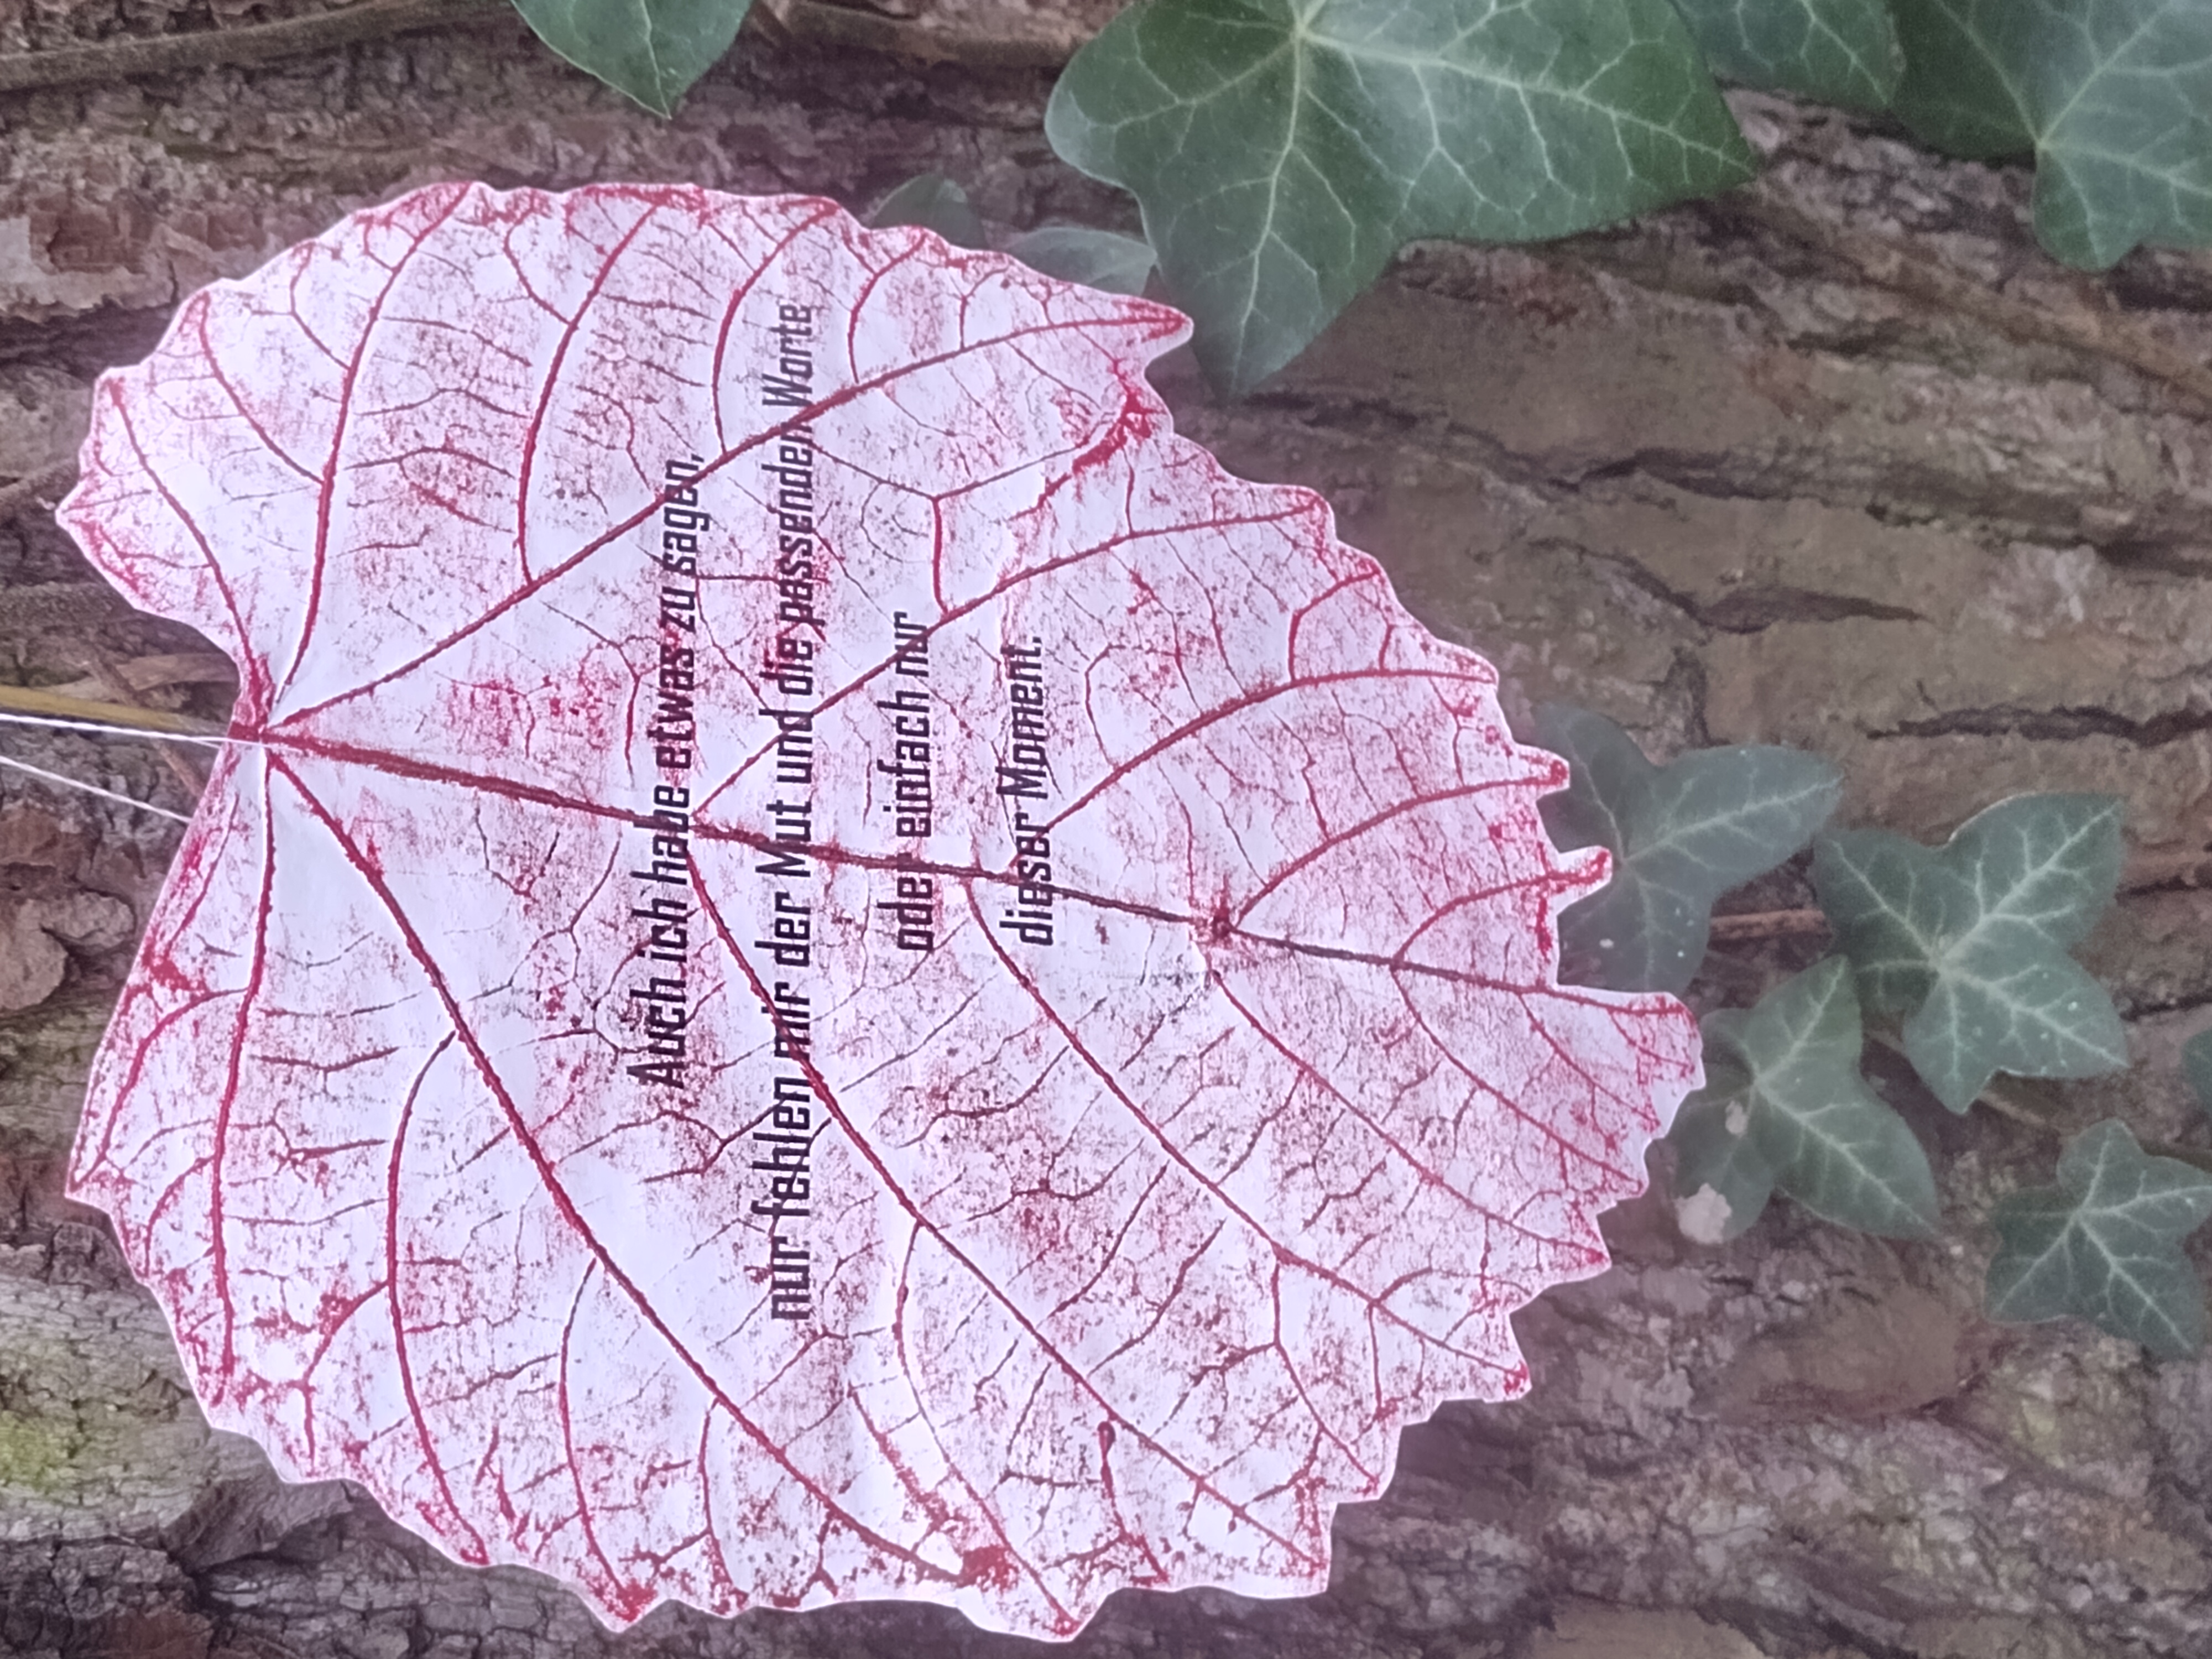 Auch ich habe etwas zu sagen,
nur fehlen mir der Mut und die passenden Worte
oder einfach nur
dieser Moment.